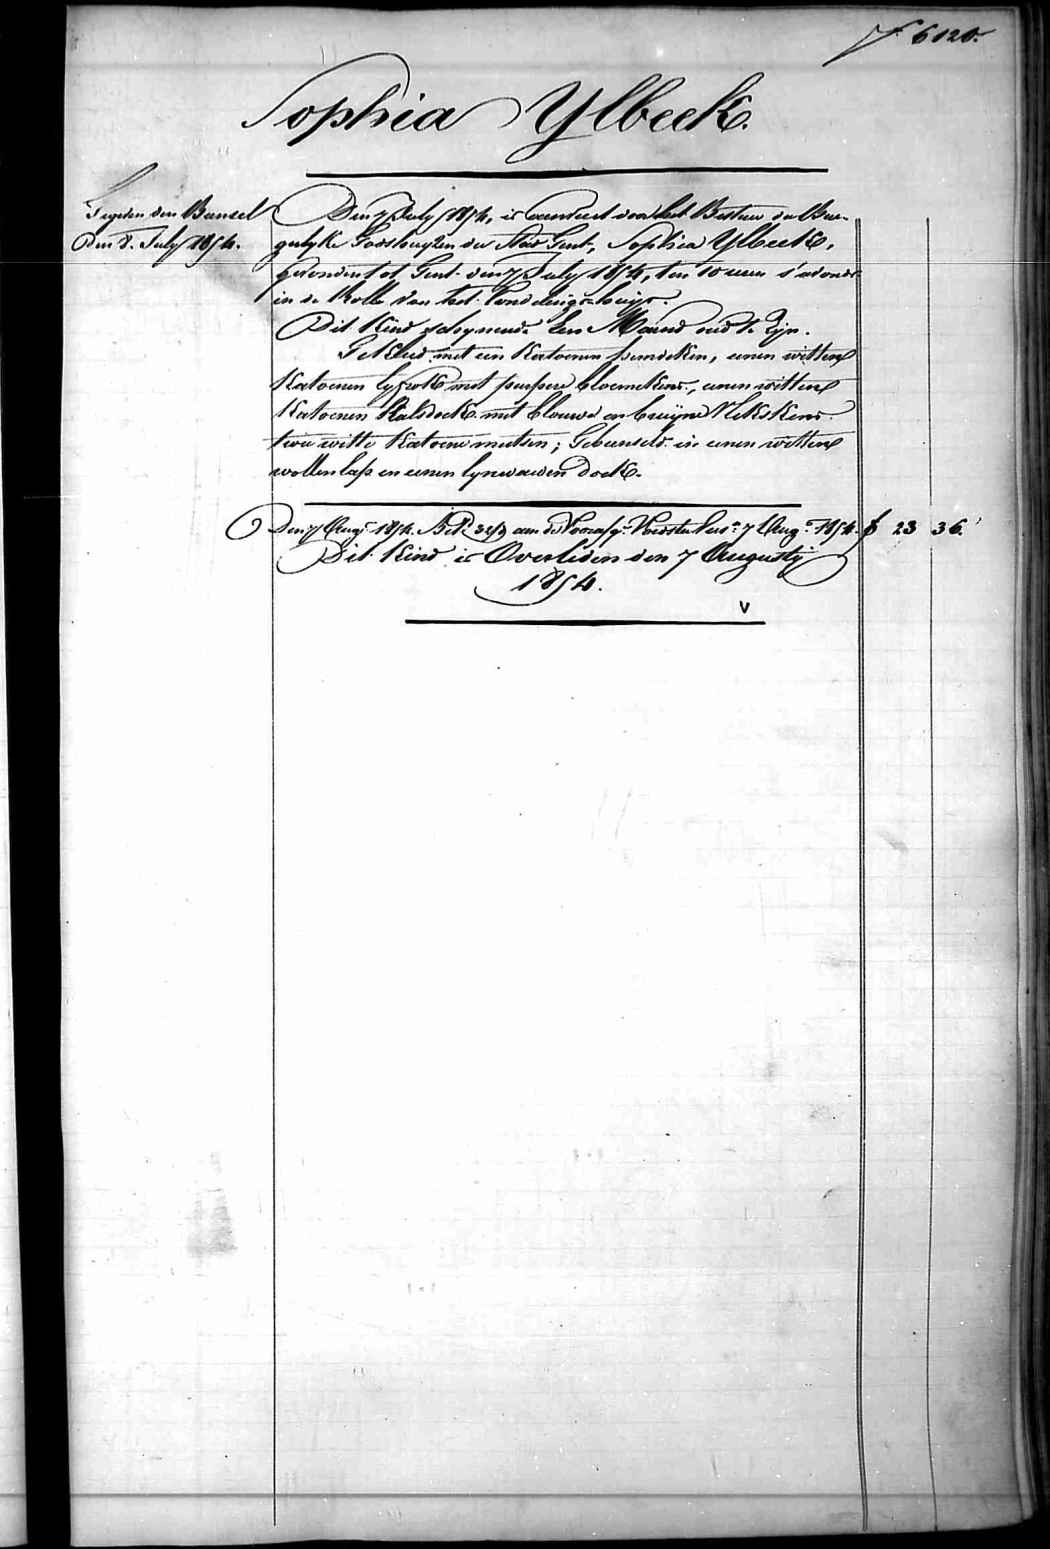 f. 6120.
Sophia Ylbeek.
Tegen den Bunsel
den 8. July 1854.
Den 7 July 1854, is aenveert door het Bestuer der Bur-
gerlyke Godshuyzen der Stad Gent, Sophia Ylbeek,
gevonden tot Gent den 7 July 1854, ten 10 uren s'avonds
in de Rolle van het Vondelings-huys.
Dit Kind schynende Een Maend oud te Zyn.
Gekleed met een Katoenen hemdeken, eenen witten
Katoenen lyfrok met purpere bloemekens, eenen witten
Katoenen Halsdoek met blauwe en bruyne Vlekskens
twee witte Katoene mutsen; Gebunseld in eenen witten
wollen lap en eenen lynwaeden doek.
Den 7 Aug. 1854. Bet. aan de Voorsten 7 Aug. 1854. f 23 36
Dit Kind is Overleden den 7 Augusty
1854.
v